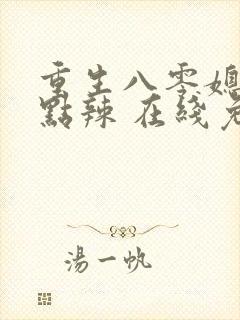 重生八零媳
點辣 在綫
湯一帆